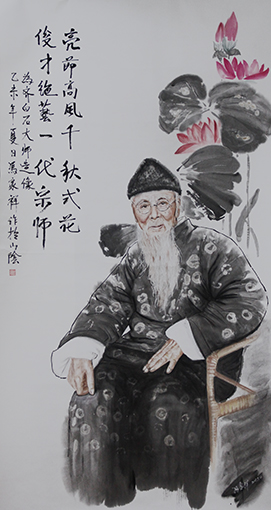 亮節高風千秋式范
俊才絕藝一代宗師
為齊白石大師造像
乙未年夏日馬家祥作於山陰